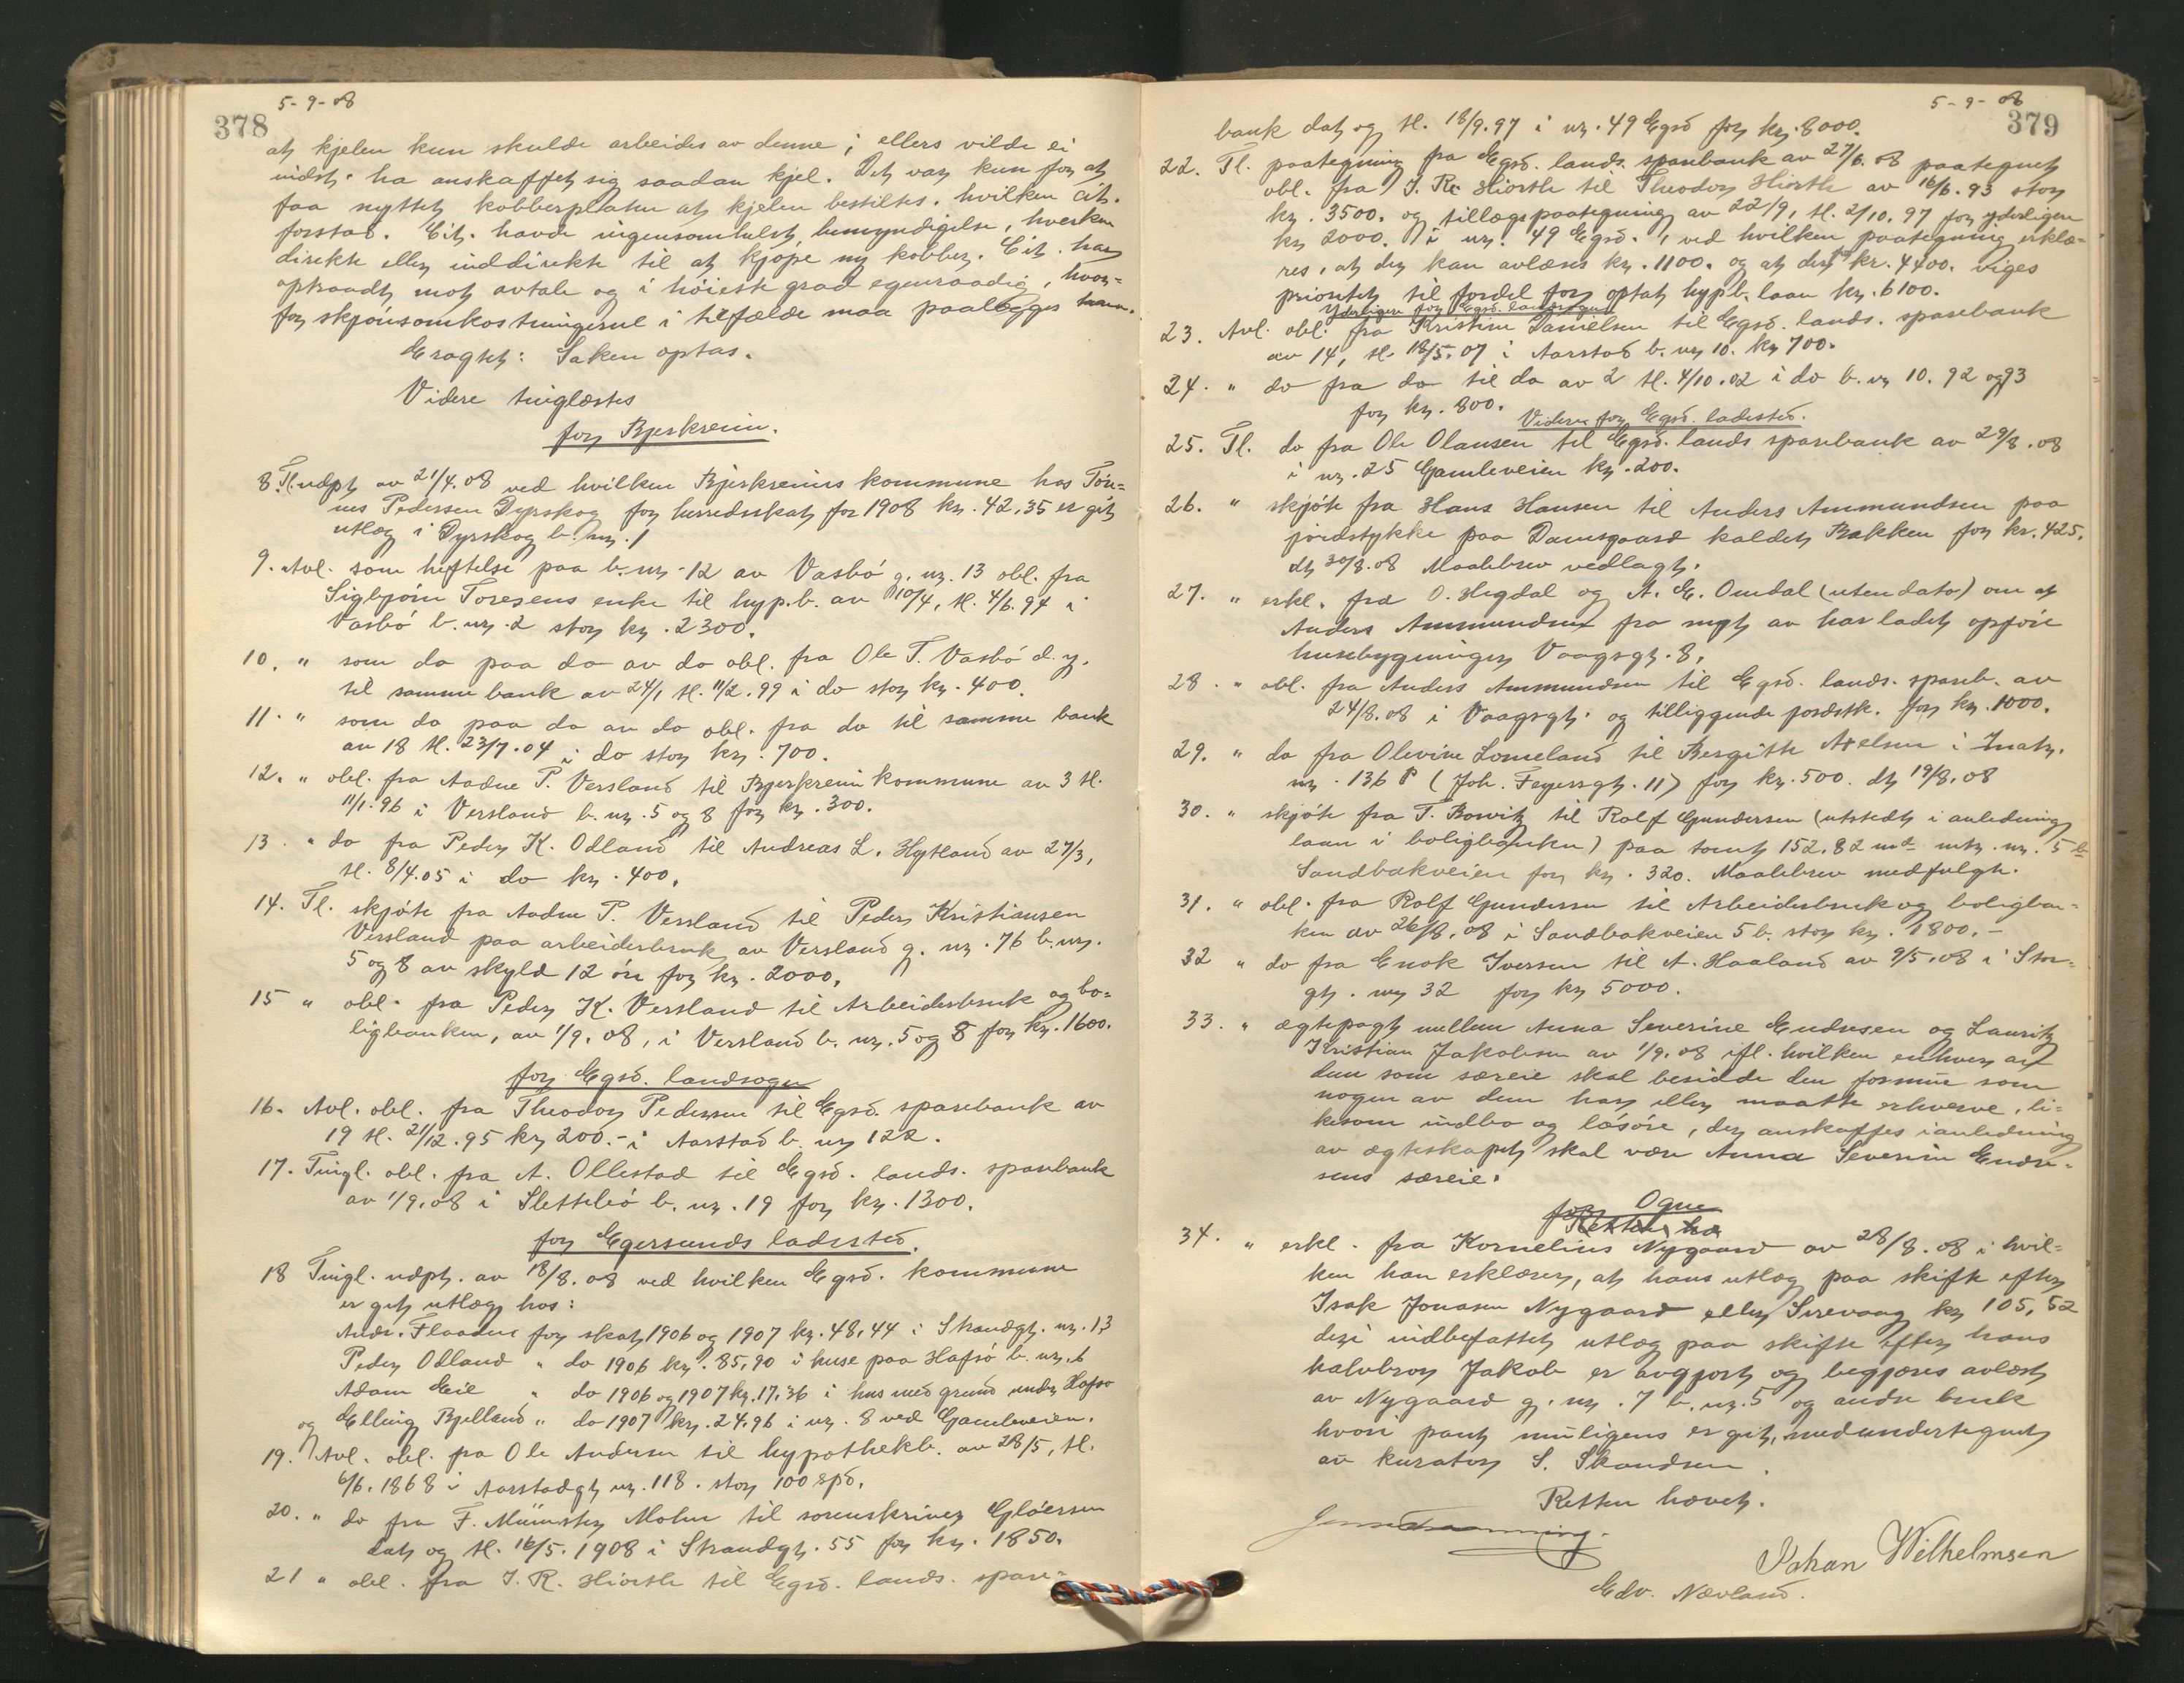 5-9-08
378
at kjelen kun skulde arbeides av denne; ellers vilde ei
indst. ha anskaffet sig saadan kjel. Det var kun for at
faa nyttet kobberplaten at kjelen bestiltes. hvilken cit.
forstod. Cit. havde ingensomhelst bemyndigelse, hverken
direkte eller inddirekte til at kjøpe ny kobber. Cit. har
optraadt mot avtale og i høieste grad egenraadig, hvor-
for skjønsomkostningerne i tilfælde maa paalægges ham.
Eragtet: Saken optas.
Videre tinglæstes
for Bjerkreim.
8. Tl. udpt av 21/4.08 ved hvilken Bjerkreims kommune hos Tøn-
nes Pedersen Dyrskog for herredsskat for 1908 kr. 42,35 er git
utlæg i Dyrskog b. nr. 1
9. Avl. som heftelse paa b. nr. 12 av Vasbø g. nr. 13 obl. fra
Sigbjørn Toresens enke til hyp.b. av 10/4, tl. 4/6.94 i
Vasbø b. nr. 2 stor kr. 2300.
10. " som do paa do av do obl. fra Ole T. Vasbø d. y.
til samme bank av 24/1 tl. 11/2.99 i do stor kr. 400.
11. " som do paa do av do obl. fra do til samme bank
av 18 tl. 23/7.04 i do stor kr. 700.
12. " obl. fra Aadne P. Versland til Bjerkreim kommune av 3 tl.
11/1.96 i Versland b. nr. 5 og 8 for kr. 300.
13. " do fra Peder K. Odland til Andreas L. Hytland av 27/3,
tl. 8/4.05 i do kr. 400.
14. Tl. skjøte fra Aadne P. Versland til Peder Kristiansen
Versland paa arbeiderbruk av Versland g. nr. 76 b. nr.
5 og 8 av skyld 12 øre for kr. 2000.
15 " obl. fra Peder K. Versland til Arbeiderbruk og bo-
ligbanken, av 1/9.08, i Versland b. nr. 5 og 8 for kr. 1600.
for Egsd. landsogn
16. Avl. obl. fra Theodor Pedersen til Egsd. sparebank av
19 tl. 21/12.95 kr 200.- i Aarstad b. nr 122.
17. Tingl. obl. fra A. Ollestad til Egsd. lands. sparebank
av 1/9.08 i Slettebø b. nr. 19 for kr. 1300.
for Egersunds ladested.
18 Tingl. udpt. av 18/8.08 ved hvilken Egsd. kommune
er git utlæg hos:
Andr. Flaaden for skat 1906 og 1907 kr. 48,44 i Strandgt. nr. 13
Peder Odland " do 1906 kr. 85,90 i huse paa Hafsø b. nr. 6
Adam Eie " do 1906 og 1907 kr. 17,36 i hus med grund under Hafsø
og Elling Bjelland " do 1907 kr. 24,96 i nr. 8 ved Gamleveien.
19. Avl. obl. fra Ole Andersen til hypothekb. av 28/5, tl.
6/6.1868 i Aarstadgt nr. 118. stor 100 spd.
20. " do fra F. Münster Mohn til sorenskriver Gløersen
dat og tl. 16/5.1908 i Strandgt. 55 for kr. 1850.
21 " obl. fra J. R. Hiorth til Egsd. lands. spare-
5-9-08
379
bank dat og tl. 18/9.97 i nr. 49 Egsd for kr. 8000.
22. Tl. paategning fra Egsd. lands. sparebank av 27/6.08 paategnet
obl. fra J. R. Hiorth til Theodor Hiorth av 16/6.93 stor
kr. 3500. og tillægspaategning av 22/9, tl. 2/10.97 for yderligere
kr 2000. i nr. 49 Egsd., ved hvilken paategning erklæ-
res, at der kan avlæses kr. 1100. og at dest kr. 4400. viges
prioritet til fordel for optat hypb. laan kr. 6100.
Yderligere for Egsd. landsogn
23. Avl. obl. fra Kristine Danielsen til Egsd. lands. sparebank
av 14, tl. 18/5.07 i Aarstad b. nr 10. kr 700.
24. " do fra do til do av 2 tl. 4/10.02 i do b. nr 10. 92 og 93
for kr. 800.
Videre for Egsd. ladested.
25. Tl. do fra Ole Olausen til Egsd. lands sparebank av 29/8.08
i nr. 25 Gamleveien kr. 200.
26. " skjøte fra Hans Hansen til Anders Ammundsen paa
jordstykke paa Damsgaard kaldet Bakken for kr. 425.
dt 30/8.08 Maalebrev vedlagt.
27. " erkl. fra O. Hegdal og A. E. Omdal (uten dato) om at
Anders Ammundsen fra nyt av har ladet opføre
husebygningen Vaagsgt. 8.
28. " obl. fra Anders Ammundsen til Egsd. lands. spareb. av
24/8.08 i Vaagsgt. og tilliggende jordstk. for kr. 1000.
29. " do fra Olevine Lomeland til Bergitte Axelsen i Matr.
nr. 136 (Joh. Feyersgt. 11) for kr. 500. dt 19/8.08
30. " skjøte fra T. Bowitz til Rolf Gundersen (utstedt i anledning
laan i boligbanken) paa tomt 152.82 m2 mtr. nr. 5 b
Sandbakveien for kr. 320. Maalebrev medfulgte.
31. " obl. fra Rolf Gundersen til Arbeiderbruk og boligban-
ken av 26/8.08 i Sandbakveien 5 b. stor kr. 1800.-
32 " do fra Enok Iversen til A. Haaland av 9/5.08 i Stor-
gt. nr 32 for kr 5000.
33. " ægtepagt mellem Anna Severine Endresen og Lauritz
Kristian Jakobsen av 1/9.08 ifl. hvilken enhver av
dem som særeie skal besidde den formue som
nogen av dem har eller maatte erhverve, li-
kesom indbo og løsøre, der anskaffes i anledning
av ægteskapet skal være Anna Severine Endre-
sens særeie.
for Ogne
Retten hæ
34. " erkl. fra Kornelius Nygaard av 28/8.08 i hvil-
ken han erklærer, at hans utlæg paa skifte efter
Isak Jonasen Nygaard eller Sirevaag kr 105,52
deri indbefattet utlæg paa skifte efter hans
halvbror Jakob er avgjort og begjæres avlæst
av Nygaard g. nr. 7 b. nr. 5 og andre bruk
hvori pant muligens er git, medundertegnet
av kurator S. Skandsen.
Retten hævet.
Johan Wilhelmsen
Edv. Nævland.